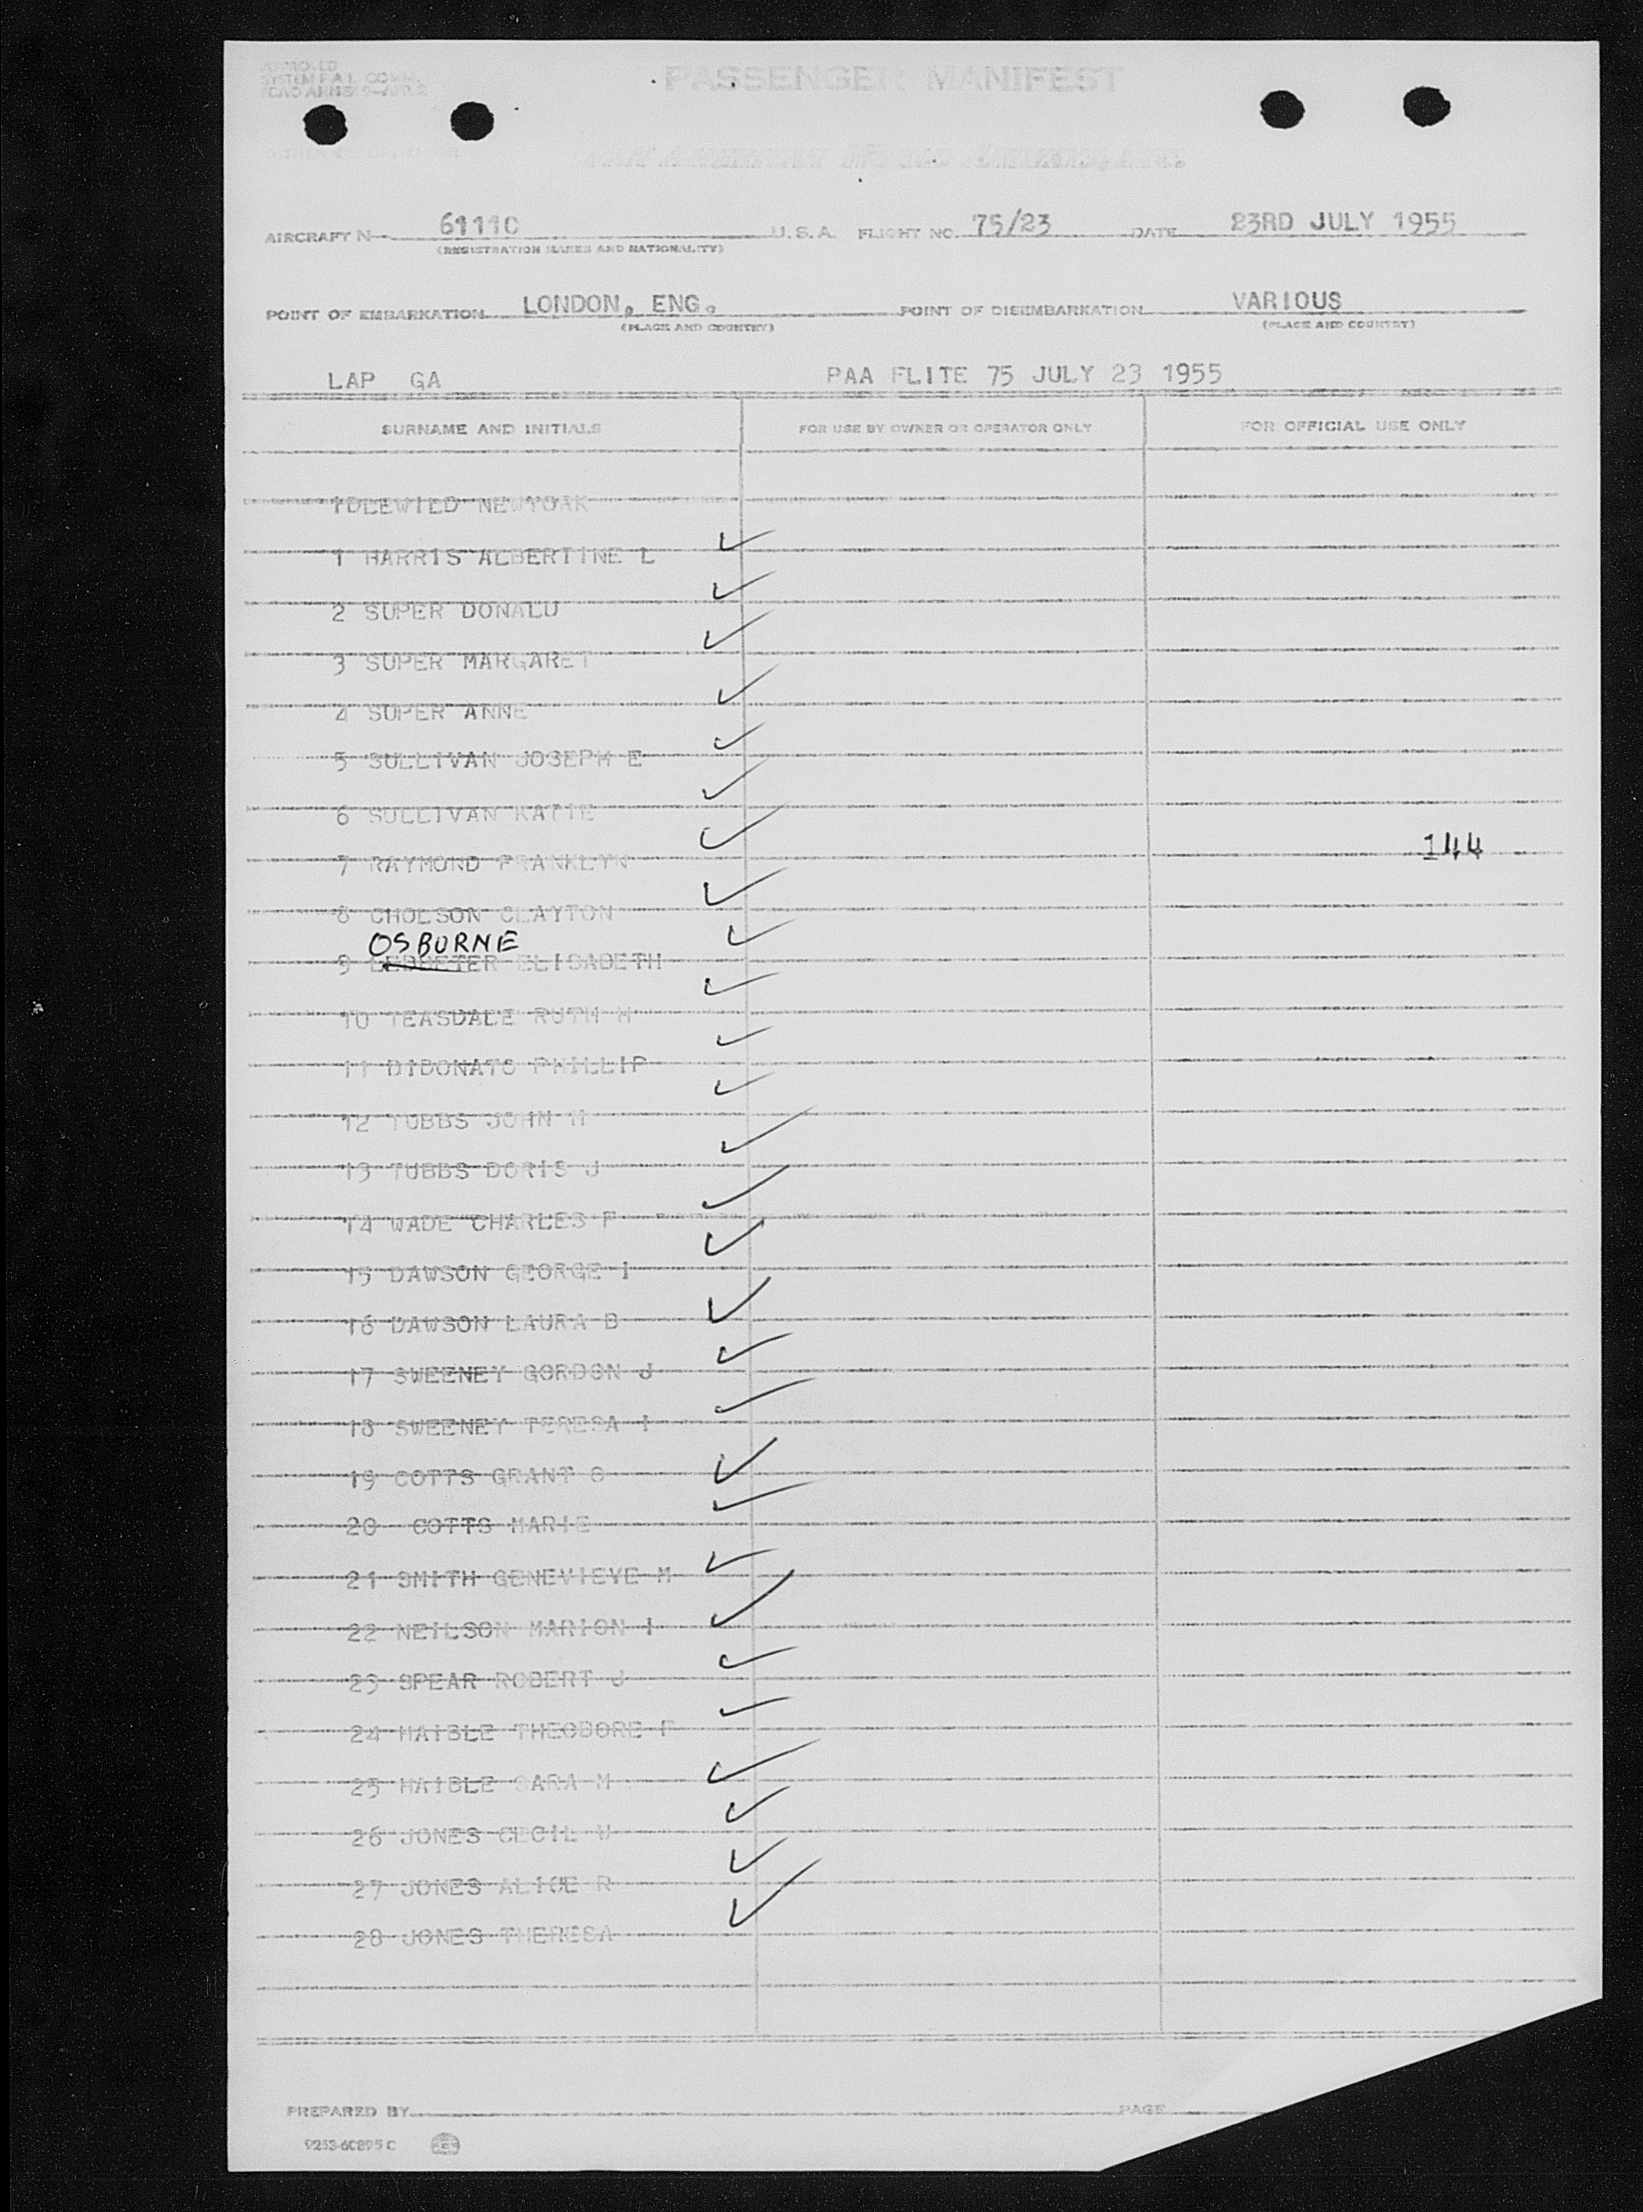 APPROVED
SYSTEM F.A.L. COMM.
ICAO ANNEX 9-APP. 2
PASSENGER MANIFEST
AIRCRAFT N 6111C U.S.A. FLIGHT NO. 75/23 DATE 23RD JULY 1955
(REGISTRATION MARKS AND NATIONALITY)
POINT OF EMBARKATION LONDON, ENG. POINT OF DISEMBARKATION VARIOUS
(PLACE AND COUNTRY) (PLACE AND COUNTRY)
LAP GA PAA FLITE 75 JULY 23 1955
SURNAME AND INITIALS FOR USE BY OWNER OR OPERATOR ONLY FOR OFFICIAL USE ONLY
IDLEWILD NEWYORK
1 HARRIS ALBERTINE L
2 SUPER DONALD
3 SUPER MARGARET
4 SUPER ANNE
5 SULLIVAN JOSEPH E
6 SULLIVAN KATIE
7 RAYMOND FRANKLYN 144
8 CHOLSON CLAYTON
OSBURNE
9 LEDBETER ELISABETH
10 TEASDALE RUTH M
11 DIDONATO PHILLIP
12 TUBBS JOHN H
13 TUBBS DORIS J
14 WADE CHARLES F
15 DAWSON GEORGE I
16 DAWSON LAURA B
17 SWEENEY GORDON J
18 SWEENEY TERESA I
19 COTTS GRANT O
20 COTTS MARIE
21 SMITH GENEVIEVE M
22 NEILSON MARION I
23 SPEAR ROBERT J
24 HAIBLE THEODORE F
25 HAIBLE SARA M
26 JONES CECIL W
27 JONES ALICE R
28 JONES THERESA
PREPARED BY PAGE
9253-60895 C